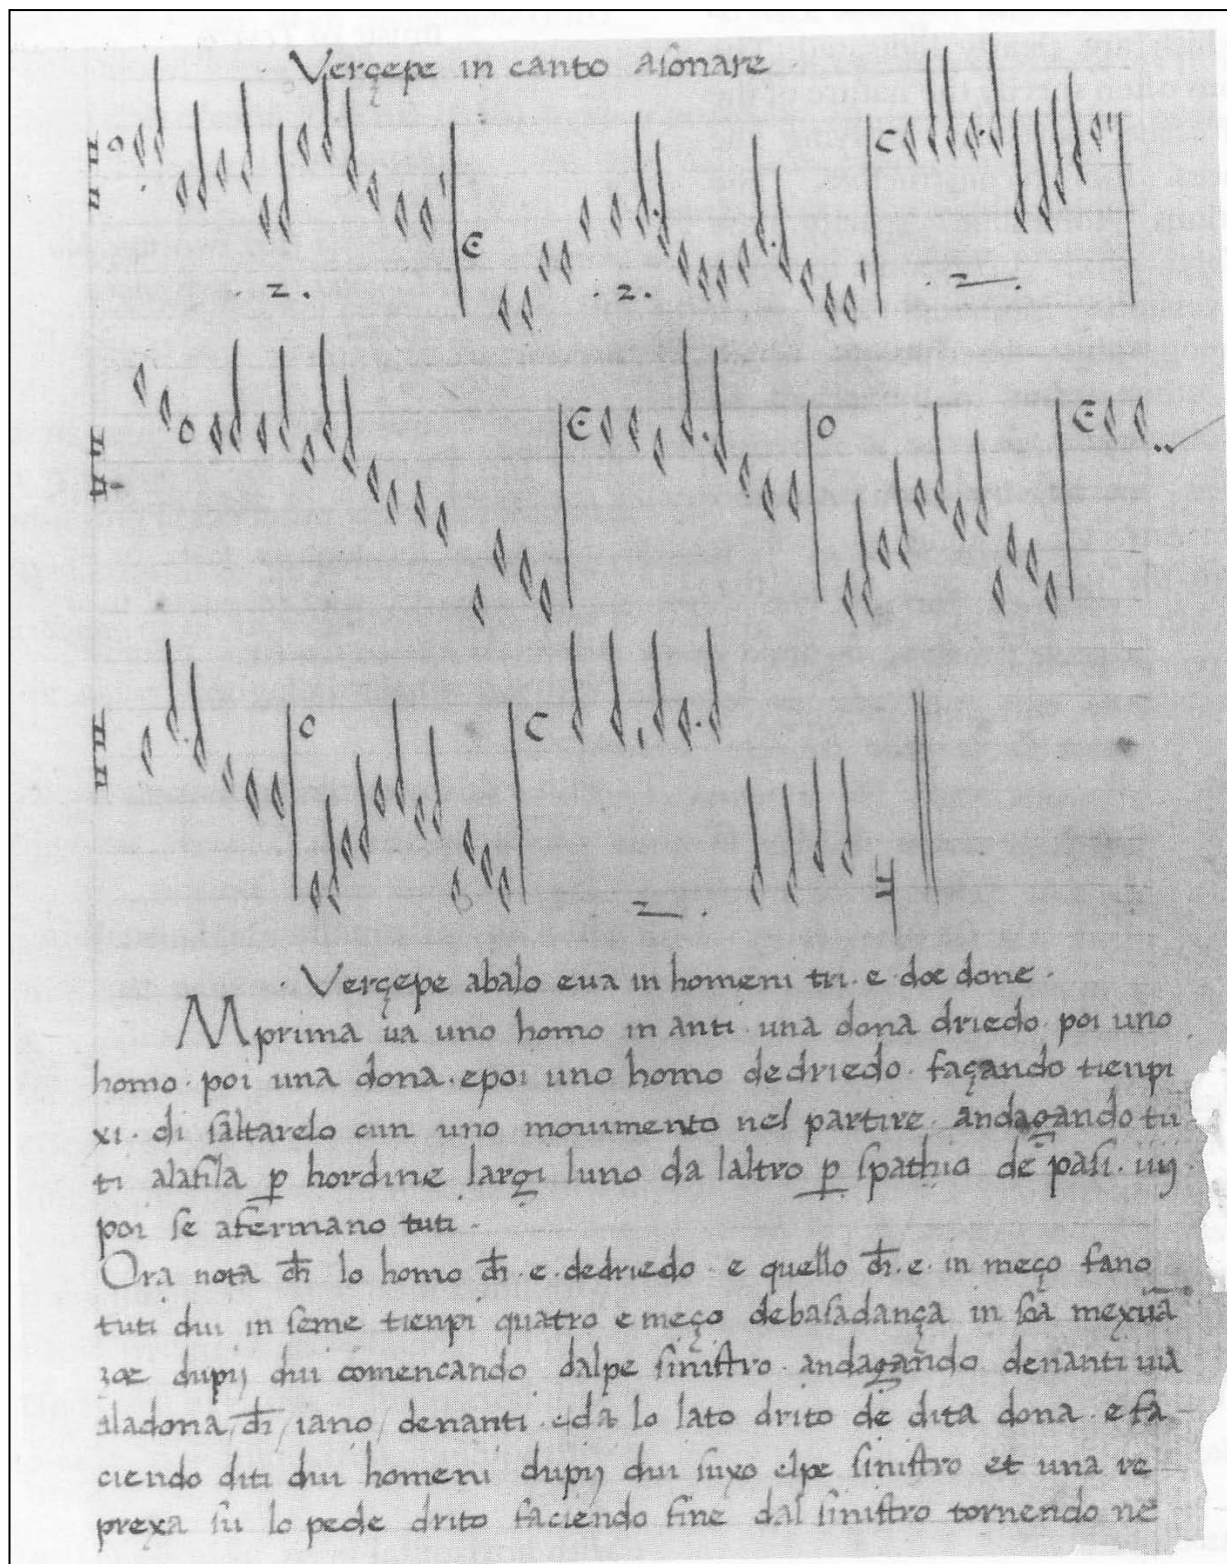 · Verçepe in canto aſonare ·
· Verçepe abalo eua in homeni tri · e · doe done ·
Mprima ua uno homo in anti · una dona driedo · poi uno
homo · poi una dona · epoi uno homo dedriedo · façando tienpi
xi · di ſaltarelo cun uno mouimento nel partire · andagando tu
ti alafila p hordine largi luno da laltro p ſpathio de paſi · iiij ·
poi ſe afermano tuti ·
Ora nota ch̄ lo homo ch̄ · e · dedriedo · e quello ch̄ · e · in meço fano
tuti dui in ſeme tienpi quatro e meço debaſadança in ſoa mexuā
zoe dupij dui comencando dalpe ſiniſtro · andagando denanti uia
aladona / ch̄ / iano / denanti · e da lo lato drito de dita dona · e fa
ciendo diti dui homeni dupij dui ſuxo elpe ſiniſtro et una re
prexa ſu lo pede drito faciendo fine dal ſiniſtro tornendo ne